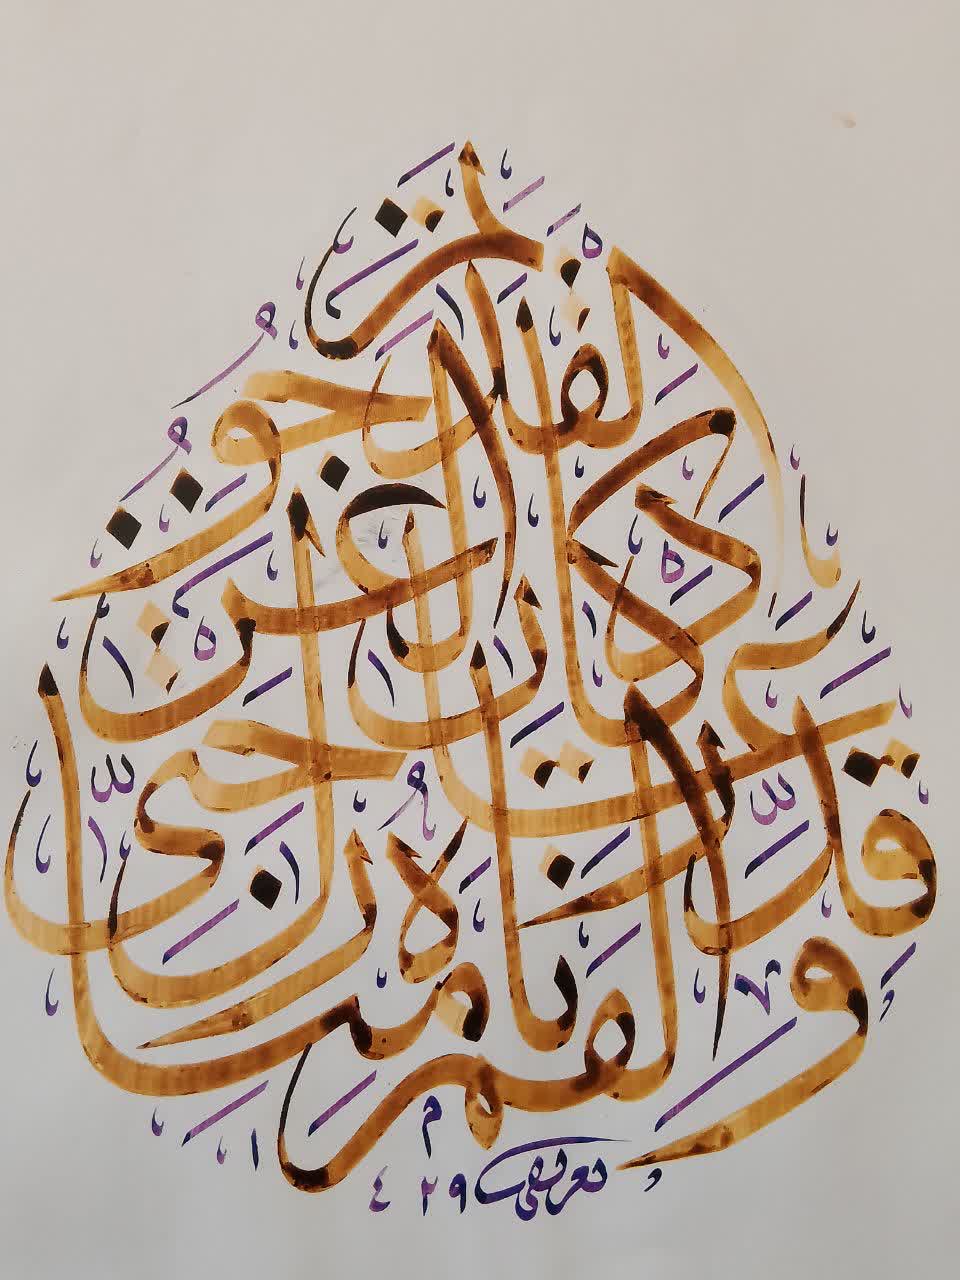 والقمر قدرناه منازل حتى عاد كالعرجون القديم